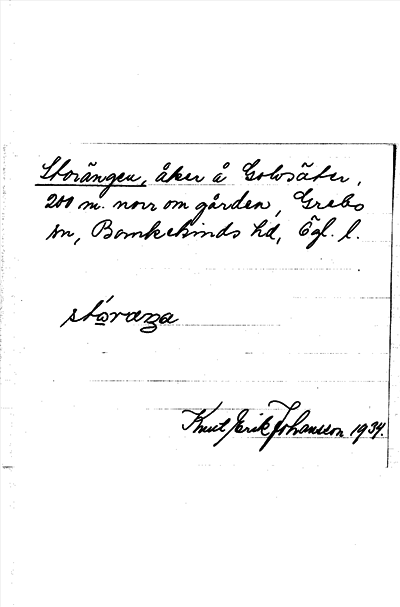 Storängen, åker å Golvsäter,
200 m. norr om gården, Grebo
sn, Bankekinds hd, Ögl. l.
Knut Erik Johansson 1934.